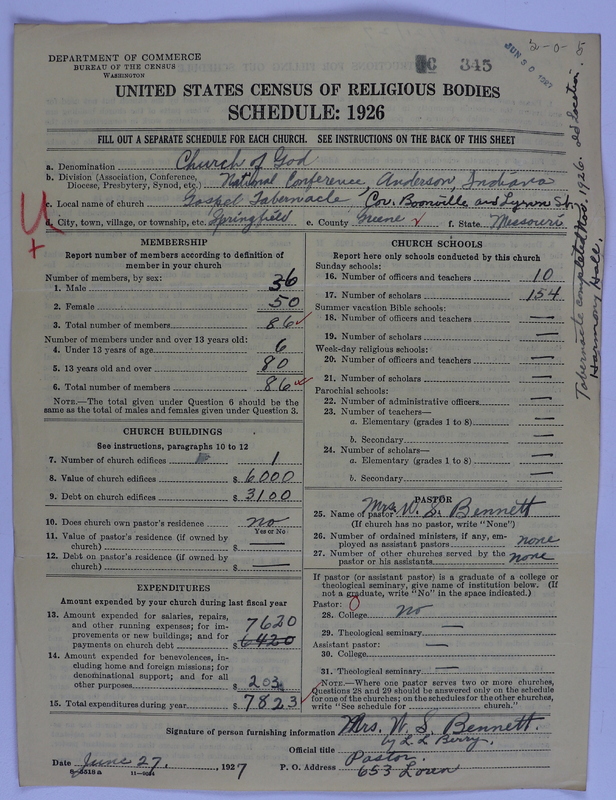 DEPARTMENT OF COMMERCE
BUREAU OF THE CENSUS
WASHINGTON
345
JUN 30 1927
2-0-5
UNITED STATES CENSUS OF RELIGIOUS BODIES
SCHEDULE: 1926
FILL OUT A SEPARATE SCHEDULE FOR EACH CHURCH. SEE INSTRUCTIONS ON THE BACK OF THIS SHEET
a. Denomination Church of God
b. Division (Association, Conference,
Diocese, Presbytery, Synod, etc.) National Conference, Anderson, Indiana
c. Local name of church Gospel Tabernacle Cor. Boonville and Lynn St.
d. City, town, village, or township, etc. Springfield e. County Greene f. State Missouri
U
+
Tabernacle completed Nov. 1926. old Location.
Harmony Hall.
MEMBERSHIP
Report number of members according to definition of
member in your church
Number of members, by sex:
1. Male 36
2. Female 50
3. Total number of members 86
Number of members under and over 13 years old:
4. Under 13 years of age 6
5. 13 years old and over 80
6. Total number of members 86
NOTE.—The total given under Question 6 should be
the same as the total of males and females given under Question 3.
CHURCH BUILDINGS
See instructions, paragraphs 10 to 12
7. Number of church edifices 1
8. Value of church edifices $ 6000
9. Debt on church edifices $ 3100
10. Does church own pastor's residence no
Yes or No
11. Value of pastor's residence (if owned by
church) $ —
12. Debt on pastor's residence (if owned by
church) $ —
EXPENDITURES
Amount expended by your church during last fiscal year
13. Amount expended for salaries, repairs,
and other running expenses; for im-
provements or new buildings; and for
payments on church debt $ 6420
7620
14. Amount expended for benevolences, in-
cluding home and foreign missions; for
denominational support; and for all
other purposes $ 203
15. Total expenditures during year $ 7823
CHURCH SCHOOLS
Report here only schools conducted by this church
Sunday schools:
16. Number of officers and teachers 10
17. Number of scholars 154
Summer vacation Bible schools:
18. Number of officers and teachers —
19. Number of scholars —
Week-day religious schools:
20. Number of officers and teachers —
21. Number of scholars —
Parochial schools:
22. Number of administrative officers —
23. Number of teachers—
a. Elementary (grades 1 to 8) —
b. Secondary —
24. Number of scholars—
a. Elementary (grades 1 to 8) —
b. Secondary —
PASTOR
25. Name of pastor Mrs. W. S. Bennett
(If church has no pastor, write "None")
26. Number of ordained ministers, if any, em-
ployed as assistant pastors none
27. Number of other churches served by the
pastor or his assistants none
If pastor (or assistant pastor) is a graduate of a college or
theological seminary, give name of institution below. (If
not a graduate, write "No" in the space indicated.)
Pastor: 0
28. College no
29. Theological seminary —
Assistant pastor:
30. College —
31. Theological seminary —
NOTE.—Where one pastor serves two or more churches,
Questions 28 and 29 should be answered only on the schedule
for one of the churches; on the schedules for the other churches,
write "See schedule for church."
Signature of person furnishing information Mrs. W. S. Bennett.
by L L Berry.
Official title Pastor.
Date June 27, 1927 P. O. Address 653 Loren
8-5518a 11-9034